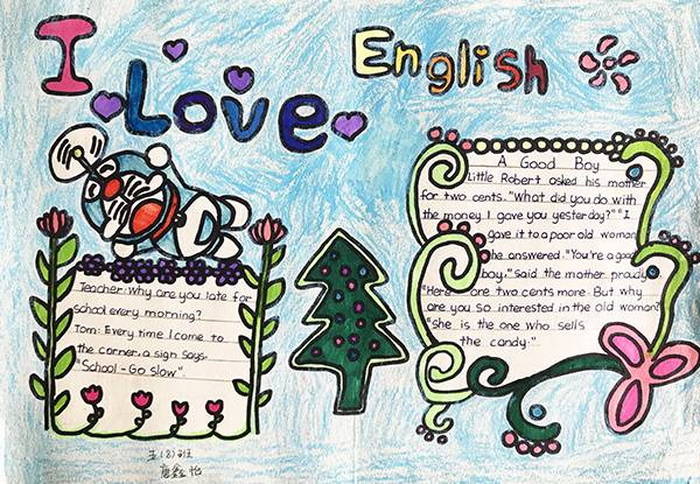 I Love English
Teacher: why are you late for
school every morning?
Tom: Every time I come to
the corner, a sign says.
"School - Go slow".
A Good Boy
Little Robert asked his mother
for two cents. "What did you do with
the money I gave you yesterday?" "I
gave it to a poor old woman
he answered. "You're a good
boy." said the mother proudly.
"Here are two cents more. But why
are you so interested in the old woman?
"she is the one who sells
the candy."